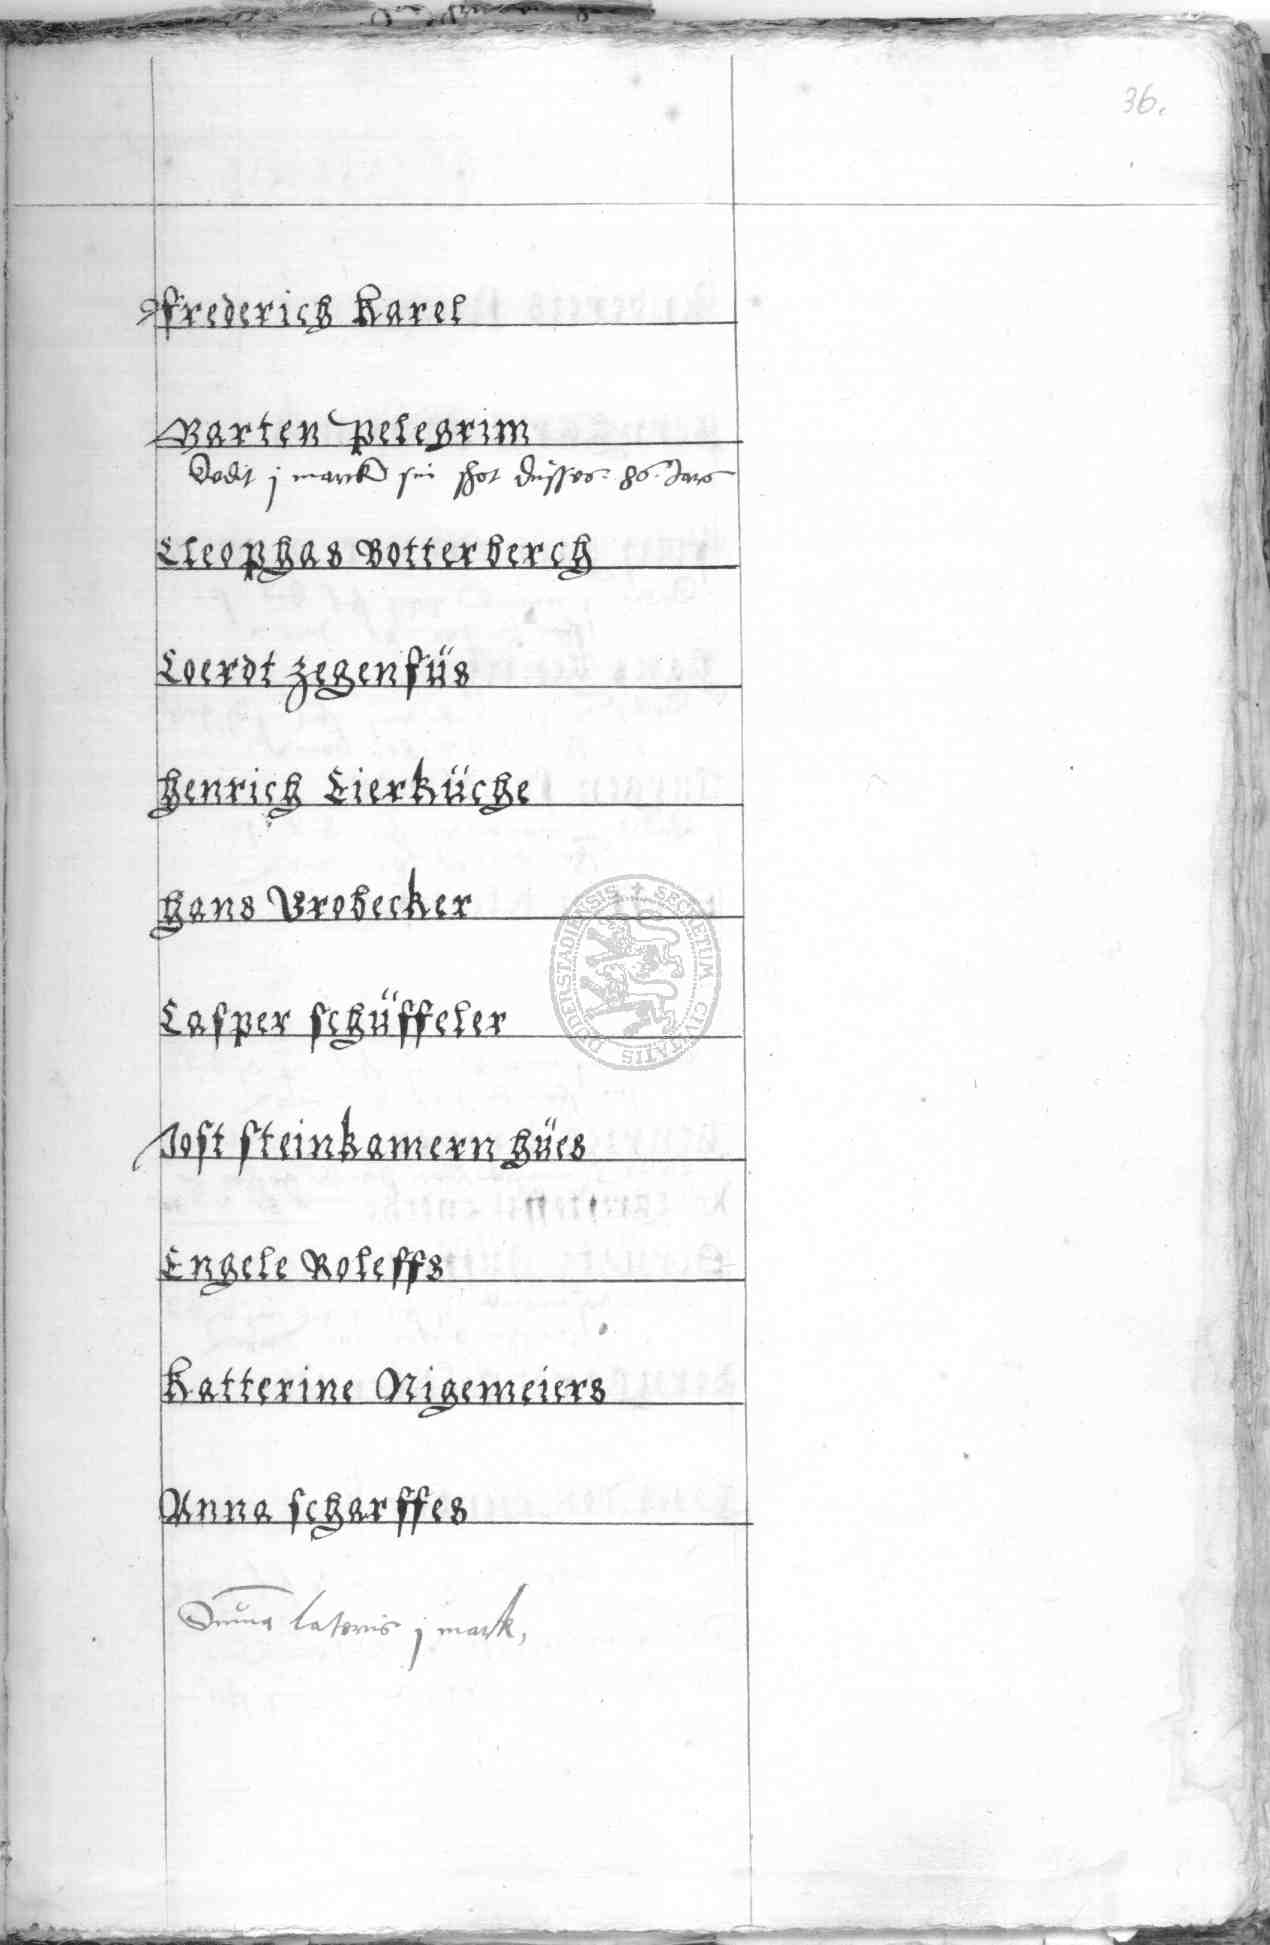 36.
Frederich Karel
Barten Pelegrim
Dedit j marck sin schot dusses 86. Jars
Cleophas Botterberch
Coerdt zegenfüs
Henrich Tierküche
Hans Brobecker
Casper schüffeler
Jost steinkamern hües
Engele Roleffs
Katterine Nigemeiers
Anna scharffes
SECRETUM CIVITATIS DUDERSTADIENSIS
Suma lateris j mark,